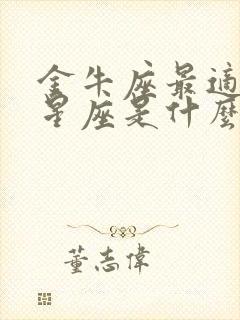 金牛座最適
星座是什麼
董志偉